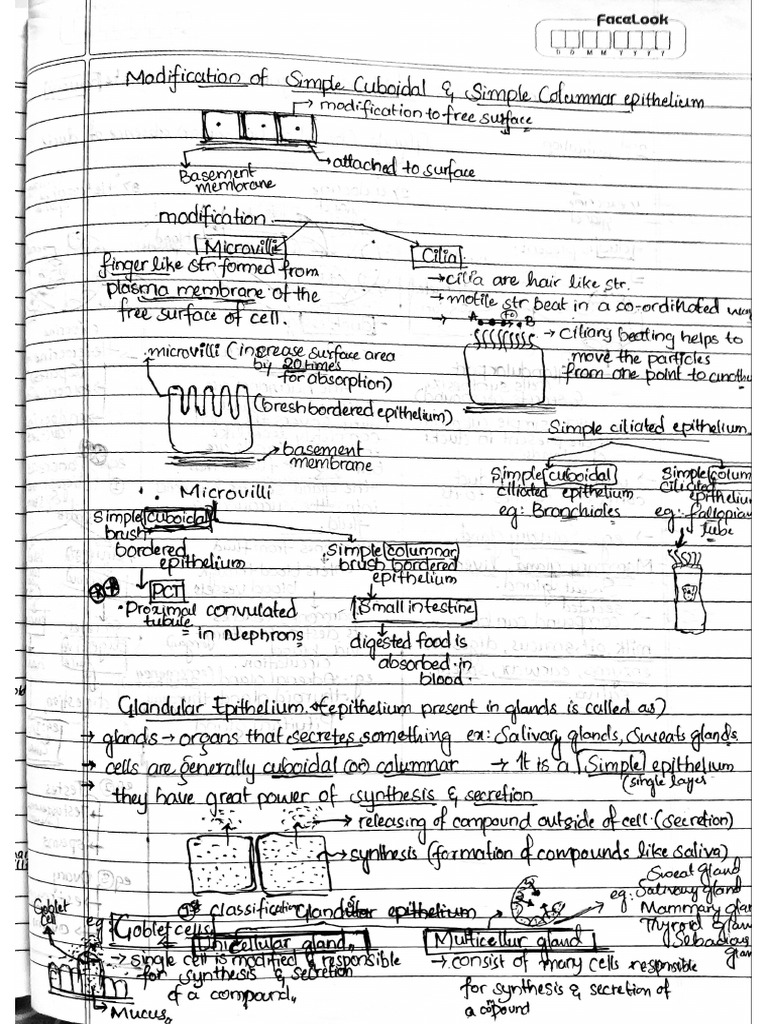 FaceLook
D D M M Y Y Y Y
Modification of Simple Cuboidal & Simple Columnar epithelium
modification to free surface
Basement membrane
attached to surface
modification
Microvilli
finger like str formed from
plasma membrane of the
free surface of cell.
Cilia
→ cilia are hair like str.
→ motile str beat in a co-ordinated way
A B
→ Ciliary beating helps to
move the particles
from one point to another
microvilli (increase surface area
by 20 times
for absorption)
(breshbordered epithelium)
basement
membrane
Simple ciliated epithelium
Simple cuboidal
ciliated epithelium
eg: Bronchioles
Simple colum
ciliated
epithelium
eg:- fallopian
tube
Microvilli
Simple cuboidal
brush
bordered
epithelium
PCT
• Proximal convulated
tubule
= in Nephrons
Simple columnar
brush bordered
epithelium
Small intestine
digested food is
absorbed in
blood.
Glandular Epithelium (epithelium present in glands is called as)
→ glands → organs that secretes something ex: Salivary glands, Sweats glands.
→ cells are generally cuboidal (or) columnar → It is a Simple epithelium
(single layer
→ they have great power of synthesis & secretion
→ releasing of compound outside of cell (secretion)
→ synthesis (formation of compounds like saliva)
1st classification Glandular epithelium
Sweat Gland
eg: Salivary gland
Mammary glan
Thyroid Glan
Sebacious
glan
Goblet
cell
eg Goblet cells
Unicellular gland
→ single cell is modified & responsible
for synthesis & secretion
of a compound.
Mucus
Multicellur gland
→ consist of many cells responsible
for synthesis & secretion of
a compound